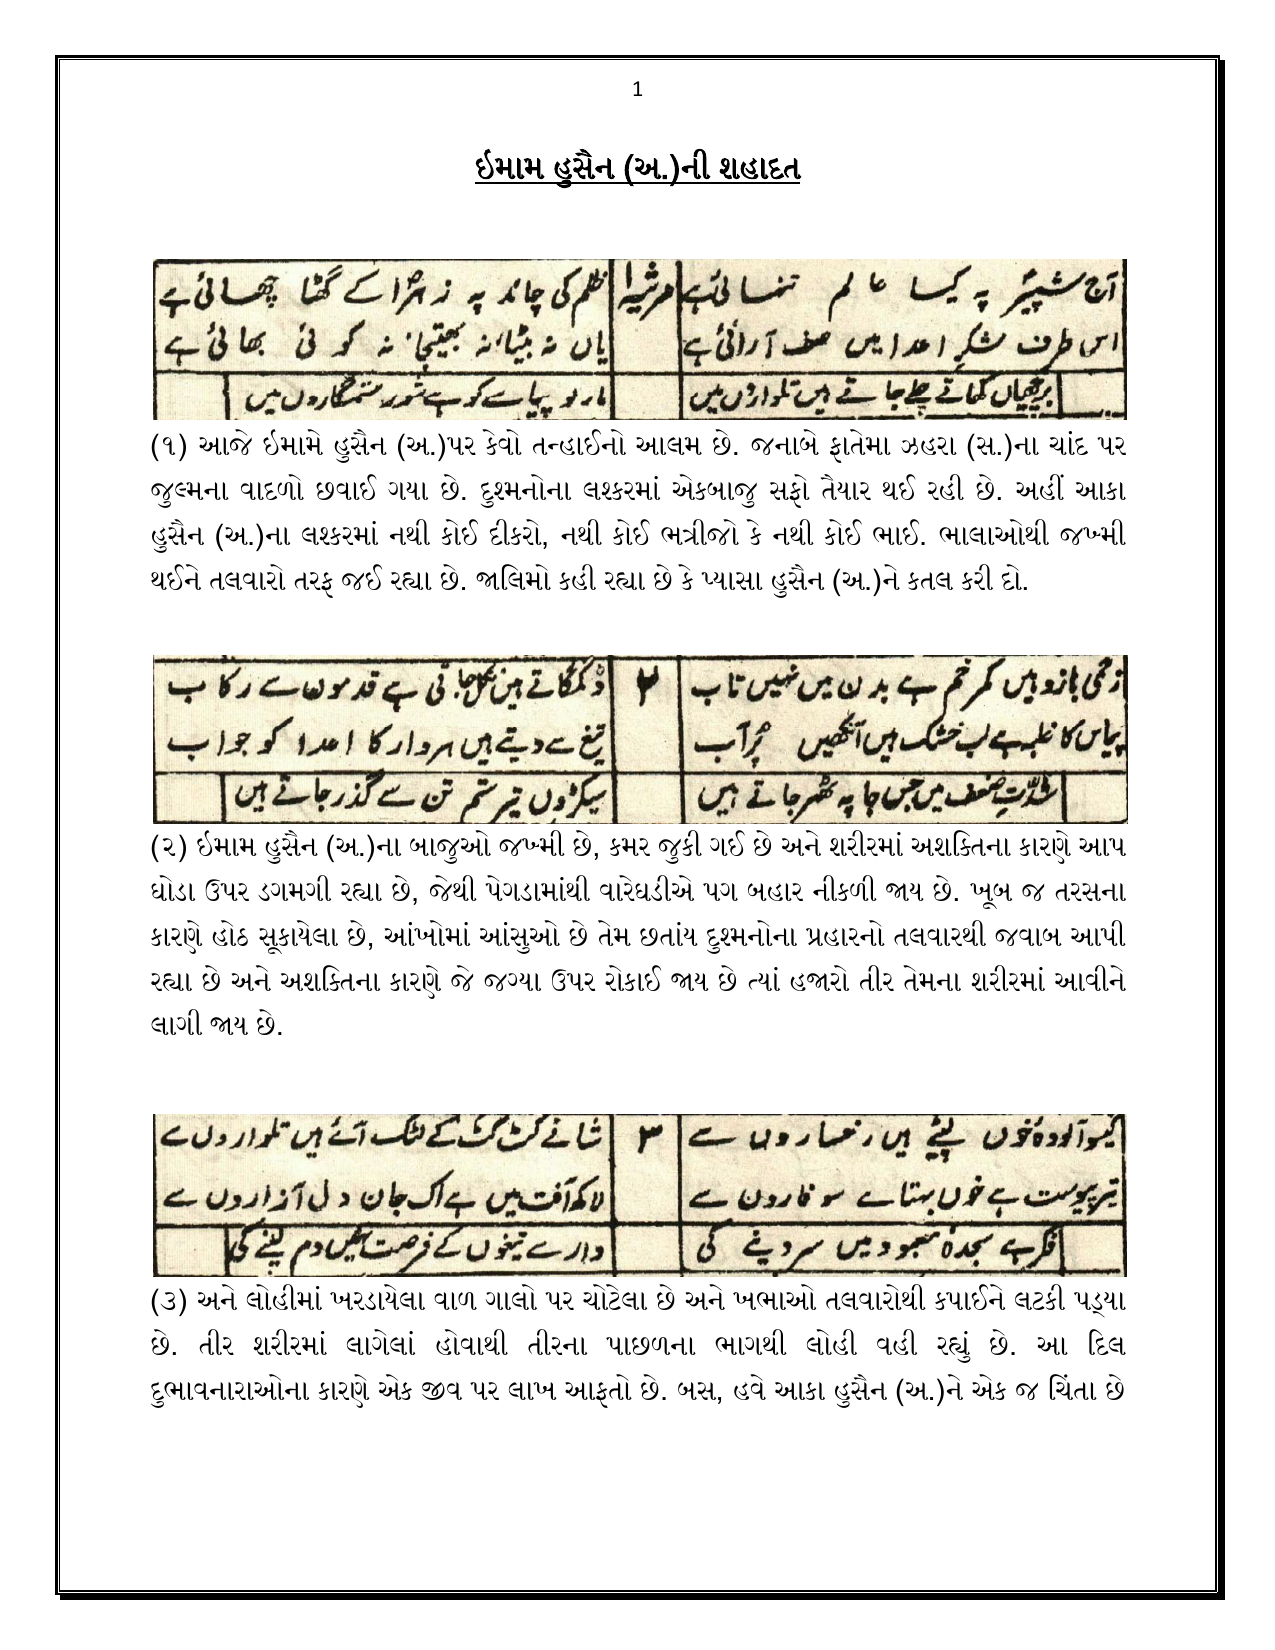 1
ઇમામ હુસૈન (અ.)ની શહાદત
آج شبیرؑ پہ کیسا عالم تنہائی ہے
مرثیہ ۱
ظلم کی چاند پہ زہراؑ کے گھٹا چھائی ہے
اس طرف لشکرِ اعدا میں صف آرائی ہے
یاں نہ بیٹا، نہ بھتیجا، نہ کوئی بھائی ہے
برچھیاں کھاتے چلے جاتے ہیں تلواروں میں
مارلو پیاسے کو ہے شور ستمگاروں میں
(૧) આજે ઇમામે હુસૈન (અ.)પર કેવો તન્હાઈનો આલમ છે. જનાબે ફાતેમા ઝહરા (સ.)ના ચાંદ પર
જુલ્મના વાદળો છવાઈ ગયા છે. દુશ્મનોના લશ્કરમાં એકબાજુ સફો તૈયાર થઈ રહી છે. અહીં આકા
હુસૈન (અ.)ના લશ્કરમાં નથી કોઈ દીકરો, નથી કોઈ ભત્રીજો કે નથી કોઈ ભાઈ. ભાલાઓથી જખ્મી
થઈને તલવારો તરફ જઈ રહ્યા છે. જાલિમો કહી રહ્યા છે કે પ્યાસા હુસૈન (અ.)ને કતલ કરી દો.
زخمی بازو ہیں کمر خم ہے بدن میں نہیں تاب
۲
ڈگمگاتے ہیں نکل جاتی ہے قدموں سے رکاب
پیاس کا غلبہ ہے لب خشک ہیں آنکھیں پُر آب
تیغ سے دیتے ہیں ہر وار کا اعدا کو جواب
شدّتِ ضعف میں جس جا پہ ٹھہر جاتے ہیں
سیکڑوں تیر ستم تن سے گذر جاتے ہیں
(૨) ઇમામ હુસૈન (અ.)ના બાજુઓ જખ્મી છે, કમર જુકી ગઈ છે અને શરીરમાં અશક્તિના કારણે આપ
ઘોડા ઉપર ડગમગી રહ્યા છે, જેથી પેગડામાંથી વારેઘડીએ પગ બહાર નીકળી જાય છે. ખૂબ જ તરસના
કારણે હોઠ સૂકાયેલા છે, આંખોમાં આંસુઓ છે તેમ છતાંય દુશ્મનોના પ્રહારનો તલવારથી જવાબ આપી
રહ્યા છે અને અશક્તિના કારણે જે જગ્યા ઉપર રોકાઈ જાય છે ત્યાં હજારો તીર તેમના શરીરમાં આવીને
લાગી જાય છે.
گیسو آلودۂ خوں لپٹے ہیں رخساروں سے
۳
شانے کٹ کٹ کے لٹک آئے ہیں تلواروں سے
تیر پیوست ہے خوں بہتا ہے سوفاروں سے
لاکھ آفت میں ہے اک جان دل آزاروں سے
فکر ہے سجدۂ معبود میں سر دینے کی
وار سے تیغوں کے فرصت نہیں دم لینے کی
(૩) અને લોહીમાં ખરડાયેલા વાળ ગાલો પર ચોટેલા છે અને ખભાઓ તલવારોથી કપાઈને લટકી પડ્યા
છે. તીર શરીરમાં લાગેલાં હોવાથી તીરના પાછળના ભાગથી લોહી વહી રહ્યું છે. આ દિલ
દુભાવનારાઓના કારણે એક જીવ પર લાખ આફતો છે. બસ, હવે આકા હુસૈન (અ.)ને એક જ ચિંતા છે